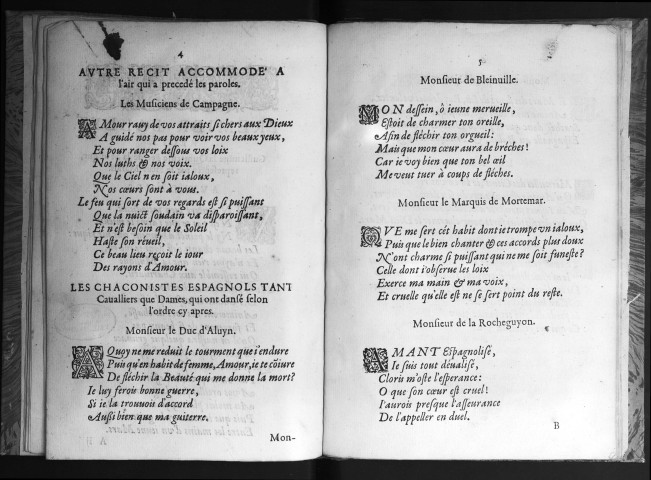 4
AVTRE RECIT ACCOMMODE' A
l'air qui a precedé les paroles.
Les Musiciens de Campagne.
AMour rauy de vos attraits si chers aux Dieux
A guidé nos pas pour voir vos beaux yeux,
Et pour ranger dessous vos loix
Nos luths & nos voix.
Que le Ciel n'en soit ialoux,
Nos cœurs sont à vous.
Le feu qui sort de vos regards est si puissant
Que la nuict soudain va disparoissant,
Et n'est besoin que le Soleil
Haste son réueil,
Ce beau lieu reçoit le iour
Des rayons d'Amour.
LES CHACONISTES ESPAGNOLS TANT
Caualliers que Dames, qui ont dansé selon
l'ordre cy apres.
Monsieur le Duc d'Aluyn.
AQuoy ne me reduit le tourment que i'endure
Puis qu'en habit de femme, Amour, ie te cõiure
De fléchir la Beauté qui me donne la mort?
Ie luy ferois bonne guerre,
Si ie la trouuois d'accord
Aussi bien que ma guiterre.
Mon-
5
Monsieur de Bleinuille.
MON dessein, ô ieune merueille,
Estoit de charmer ton oreille,
Afin de fléchir ton orgueil:
Mais que mon cœur aura de brêches!
Car ie voy bien que ton bel œil
Me veut tuer à coups de fléches.
Monsieur le Marquis de Mortemar.
QVE me sert cét habit dont ie trompe vn ialoux,
Puis que le bien chanter & ces accords plus doux
N'ont charme si puissant qui ne me soit funeste?
Celle dont i'obserue les loix
Exerce ma main & ma voix,
Et cruelle qu'elle est ne se sert point du reste.
Monsieur de la Rocheguyon.
AMANT Espagnolisé,
Ie suis tout déualisé,
Cloris m'oste l'esperance:
O que son cœur est cruel!
I'aurois presque l'asseurance
De l'appeller en duel.
B